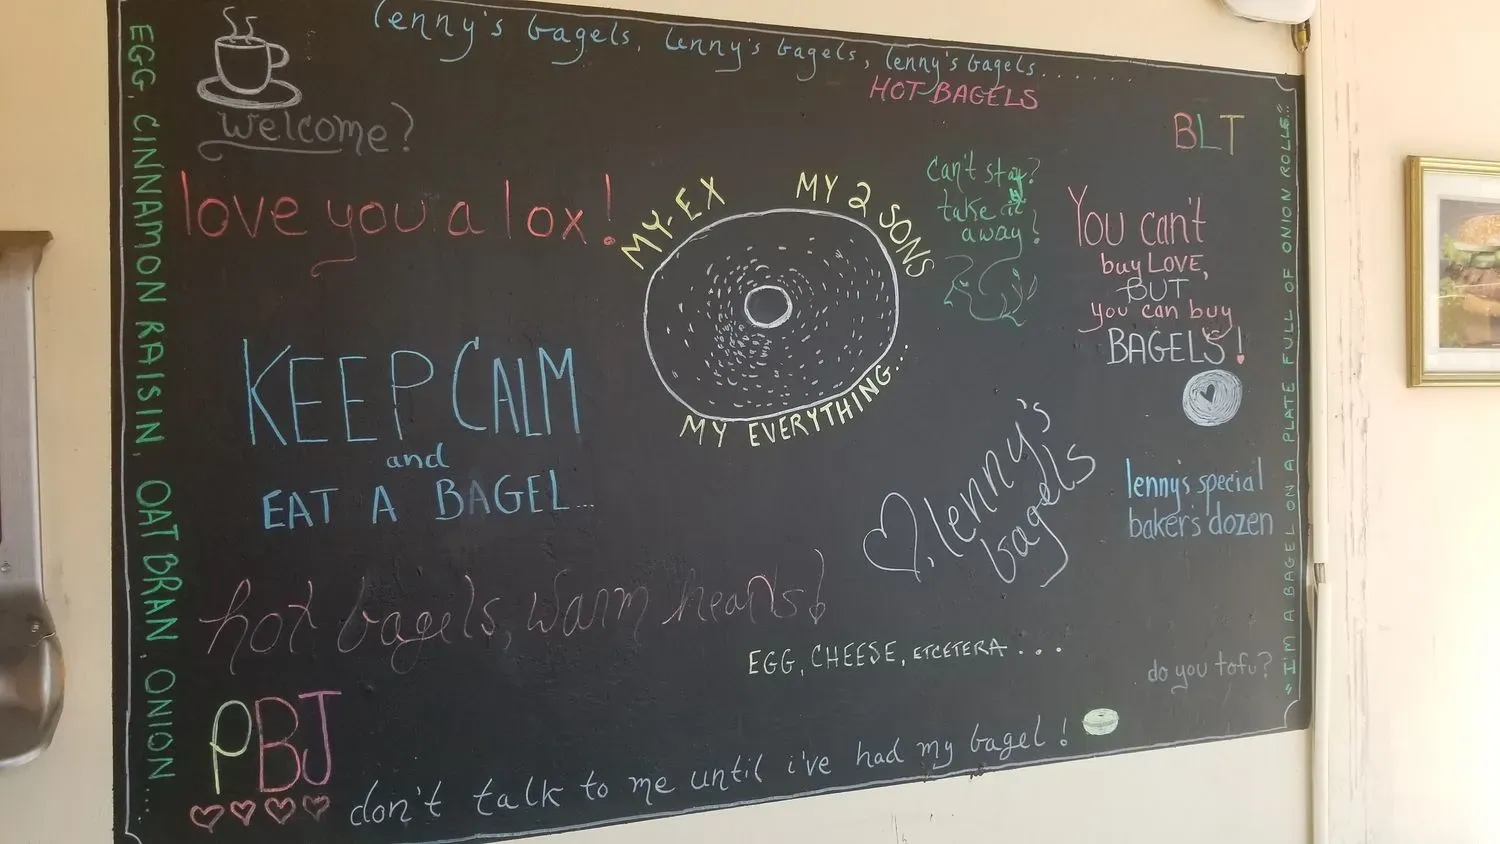 lenny's bagels, lenny's bagels, lenny's bagels.......
HOT BAGELS
EGG, CINNAMON RAISIN, OAT BRAN, ONION....
welcome?
BLT
love you a lox!
MY-EX
MY 2 SONS
MY EVERYTHING...
can't stay?
take it
away!
You can't
buy LOVE,
BUT
you can buy
BAGELS!
"I'M A BAGEL ON A PLATE FULL OF ONION ROLLS..."
KEEP CALM
and
EAT A BAGEL...
lenny's
bagels
lenny's special
baker's dozen
hot bagels, warm hearts!
EGG, CHEESE, ETCETERA...
do you tofu?
PBJ
don't talk to me until i've had my bagel!